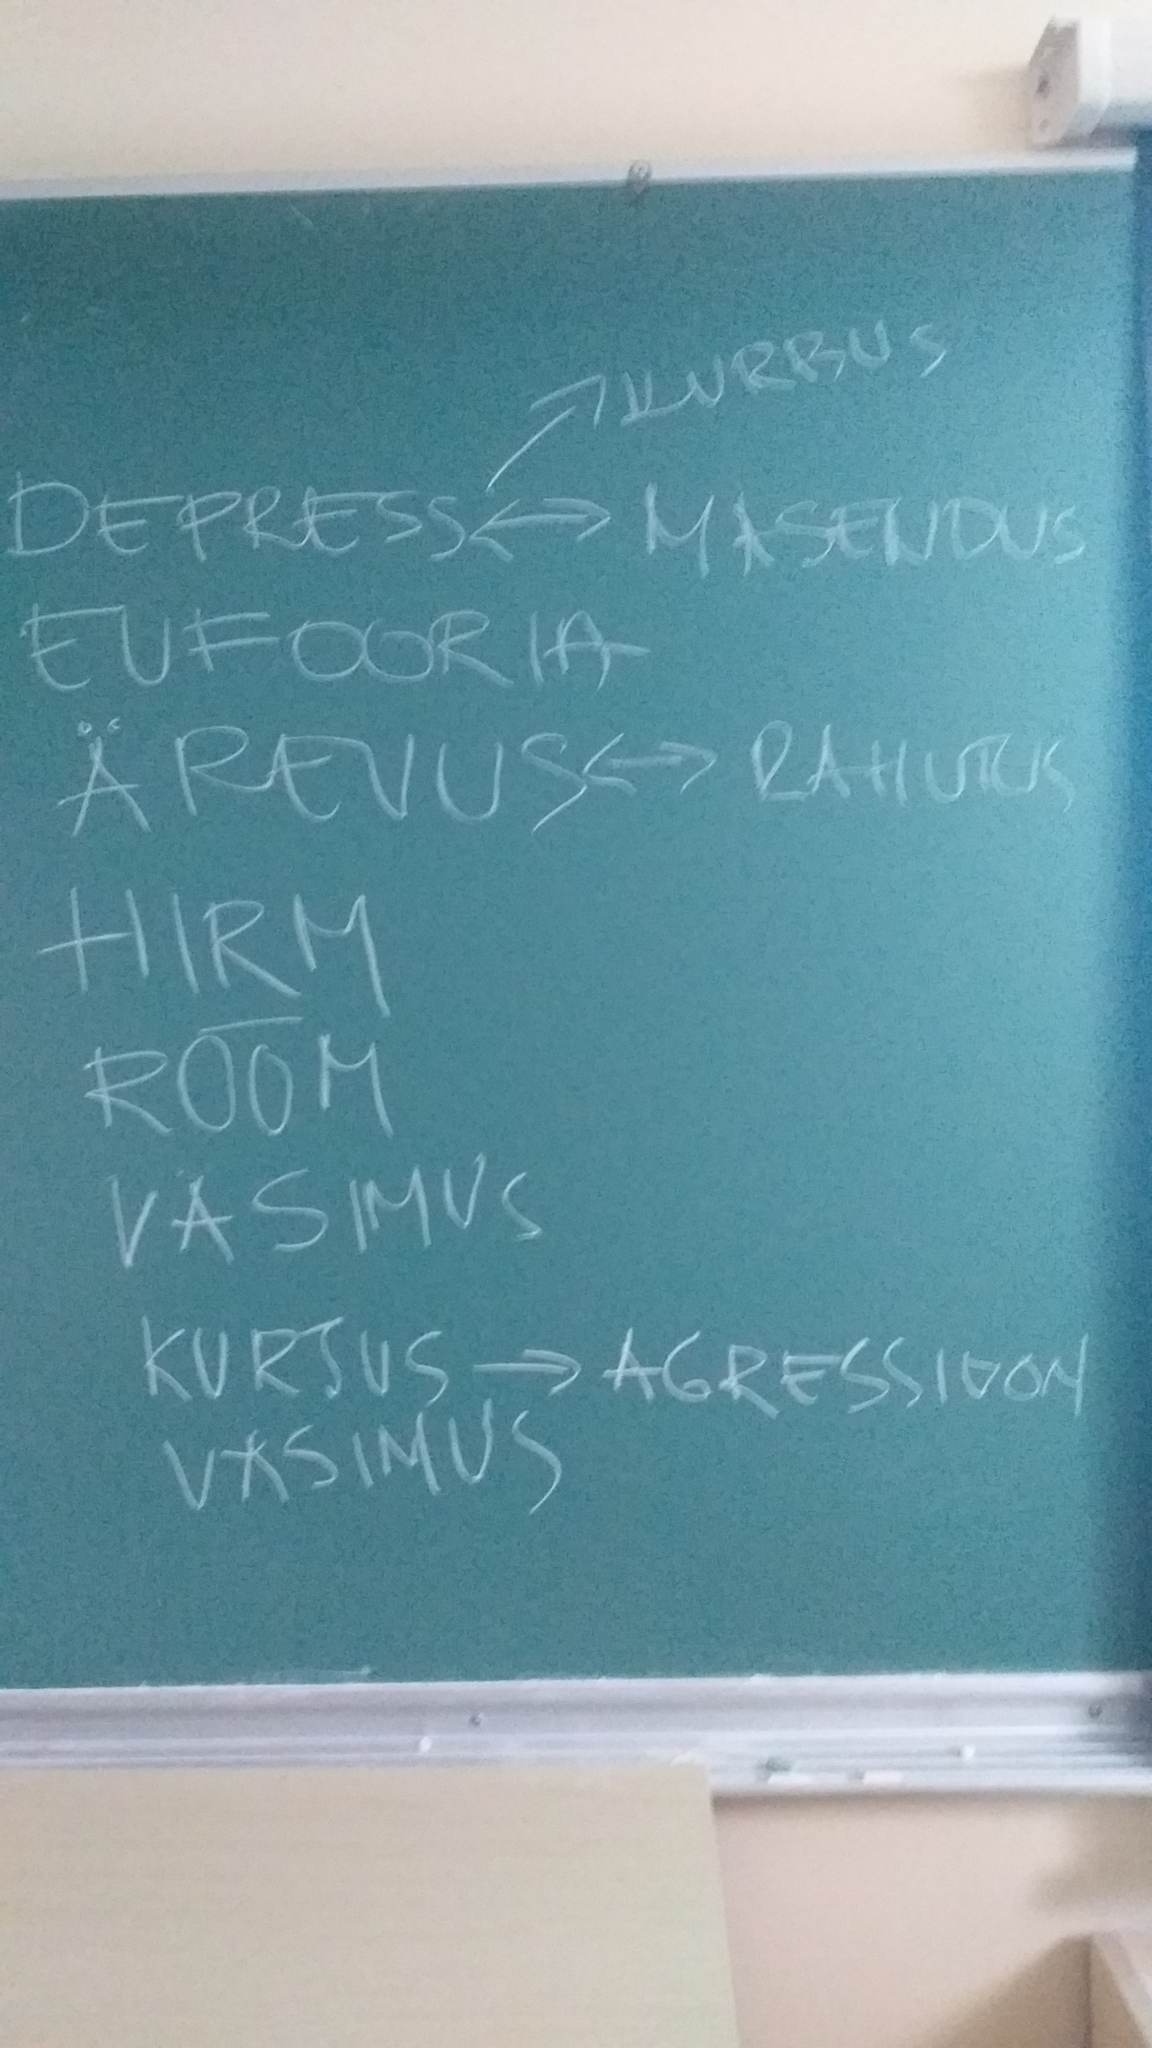 KURBUS
DEPRESS <-> MASENDUS
EUFOORIA
ÄREVUS <-> RAHUTUS
HIRM
RÕÕM
VÄSIMUS
KURJUS -> AGRESSIOON
VÄSIMUS